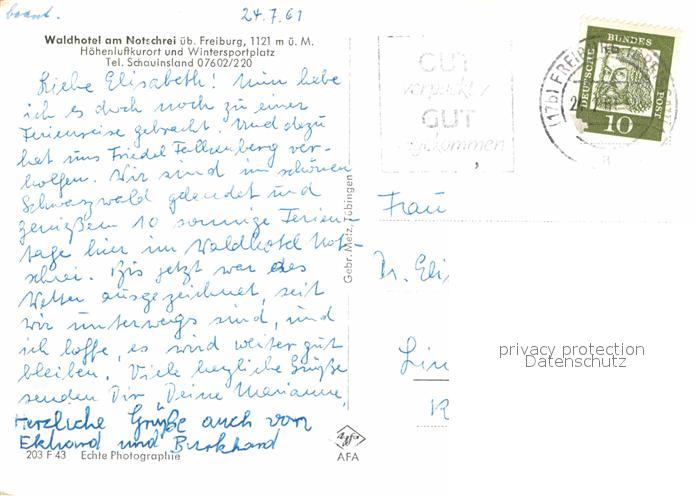 beant. 24.7.61
Waldhotel am Notschrei üb. Freiburg, 1121 m ü. M.
Höhenluftkurort und Wintersportplatz
Tel. Schauinsland 07602/220
Liebe Elisabeth! Nun habe
ich es doch noch zu einer
Ferienreise gebracht. Und dazu
hat uns Friedel Falkenberg ver-
holfen. Wir sind im schönen
Schwarzwald gelandet und
genießen 10 sonnige Ferien-
tage hier im Waldhotel Not-
schrei. Bis jetzt war das
Wetter ausgezeichnet, seit
wir unterwegs sind, und
ich hoffe, es wird weiter gut
bleiben. Viele herzliche Grüße
senden Dir Deine Marianne,
Herzliche Grüße auch von
Ekhard und Burkhard
203 F 43 Echte Photographie
Gebr. Metz, Tübingen
Agfa
AFA
GUT
verpackt
GUT
angekommen
(17b) FREIBURG
DEUTSCHE BUNDESPOST
10
Frau
Dr. Eli
Lin
privacy protection
Datenschutz